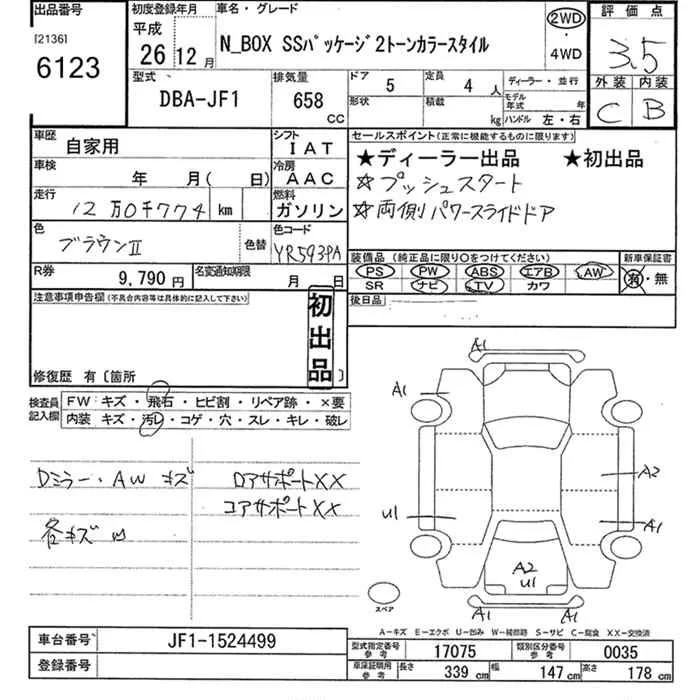 出品番号
[2136]
6123
初度登録年月
平成
26 12月
車名・グレード
N_BOX SSパッケージ2トーンカラースタイル
2WD
・
4WD
評価点
3.5
外装 内装
C B
型式
DBA-JF1
排気量
658
CC
ドア 5
定員 4 人
形状
積載 kg
ディーラー・並行
モデル年式 年
ハンドル 左・右
車歴
自家用
シフト
IAT
車検
年 月( 日)
冷房
AAC
走行
12万0千774 km
燃料
ガソリン
色
ブラウンⅡ
色替
色コード
YR593PA
R券
9,790 円
名変通知期限
月 日
セールスポイント(正常に機能するものに限ります)
★ディーラー出品 ★初出品
☆プッシュスタート
☆両側パワースライドドア
装備品(純正品に限り○をつけてください)
PS PW ABS エアB AW
SR ナビ TV カワ
新車保証書
有・無
後日品
注意事項申告欄(不具合内容等は具体的に記入して下さい)
初出品
修復歴 有〔箇所
検査員記入欄
FW キズ・飛石・ヒビ割・リペア跡・×要
内装 キズ・汚レ・コゲ・穴・スレ・キレ・破レ
Dミラー・AW キズ
ロアサポートXX
コアサポートXX
各キズ凹
A1
A1
A2
U1
A1
A2
U1
A1 A1
スペア
A-キズ E-エクボ U-凹み W-補修跡 S-サビ C-腐食 XX-交換済
車台番号
JF1-1524499
登録番号
型式指定番号参考
17075
類別区分番号参考
0035
車庫証明用参考
長さ 339 cm
幅 147 cm
高さ 178 cm